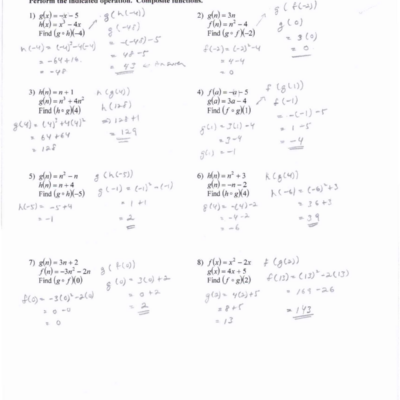 Perform the indicated operation. Composite functions.
1) g(x) = -x - 5
h(x) = x³ - 4x
Find (g ∘ h)(-4)
g(h(-4))
g(-48)
h(-4) = (-4)³ - 4(-4)
= -64 + 16
= -48
= -(-48) - 5
= 48 - 5
= 43
2) g(n) = 3n
f(n) = n² - 4
Find (g ∘ f)(-2)
g(f(-2))
g(0)
= 3(0)
= 0
f(-2) = (-2)² - 4
= 4 - 4
= 0
3) h(n) = n + 1
g(n) = n³ + 4n²
Find (h ∘ g)(4)
h(g(4))
h(128)
= 128 + 1
= 129
g(4) = (4)³ + 4(4)²
= 64 + 64
= 128
4) f(a) = -a - 5
g(a) = 3a - 4
Find (f ∘ g)(1)
f(g(1))
f(-1)
= -(-1) - 5
= 1 - 5
= -4
g(1) = 3(1) - 4
= 3 - 4
g(1) = -1
5) g(n) = n² - n
h(n) = n + 4
Find (g ∘ h)(-5)
g(h(-5))
g(-1) = (-1)² - (-1)
= 1 + 1
= 2
h(-5) = -5 + 4
= -1
6) h(n) = n² + 3
g(n) = -n - 2
Find (h ∘ g)(4)
h(g(4))
h(-6) = (-6)² + 3
= 36 + 3
= 39
g(4) = -(4) - 2
= -4 - 2
= -6
7) g(n) = 3n + 2
f(n) = -3n² - 2n
Find (g ∘ f)(0)
g(f(0))
g(0) = 3(0) + 2
= 0 + 2
= 2
f(0) = -3(0)² - 2(0)
= 0 - 0
= 0
8) f(x) = x² - 2x
g(x) = 4x + 5
Find (f ∘ g)(2)
f(g(2))
f(13) = (13)² - 2(13)
= 169 - 26
= 143
g(2) = 4(2) + 5
= 8 + 5
= 13